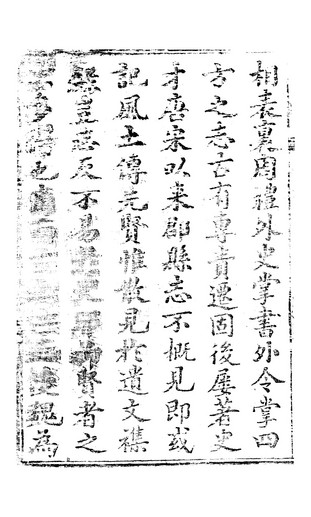 相表裏周禮外史掌書外令掌四
方之志古有專責遷固後屢著史
才唐宋以來郡縣志不概見即或
記風土傳先賢惟散見於遺文襍
豈志反不易賢者之
多得也魏為